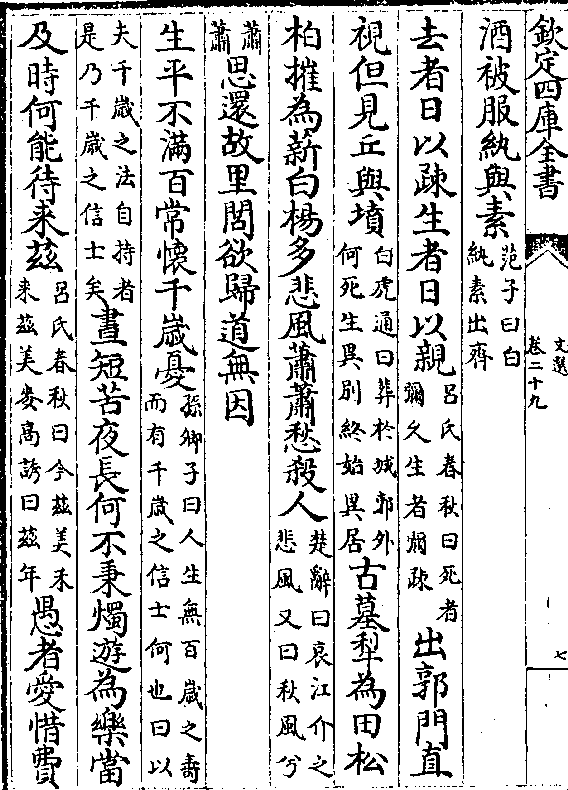 欽定四庫全書
文選
卷二十九
七
酒被服紈與素范子曰白紈素出齊
去者日以疎生者日以親呂氏春秋曰死者彌久生者彌疎出郭門直
視但見丘與墳白虎通曰葬於城郭外何死生異別終始異居古墓犂為田松
柏摧為薪白楊多悲風蕭蕭愁殺人楚辭曰哀江介之悲風又曰秋風兮
蕭蕭思還故里閭欲歸道無因
生平不滿百常懷千歲憂孫卿子曰人生無百歲之壽而有千歲之信士何也曰以
夫千歲之法自持者是乃千歲之信士矣晝短苦夜長何不秉燭遊為樂當
及時何能待来茲呂氏春秋曰今茲美禾来茲美麥高誘曰茲年愚者愛惜費